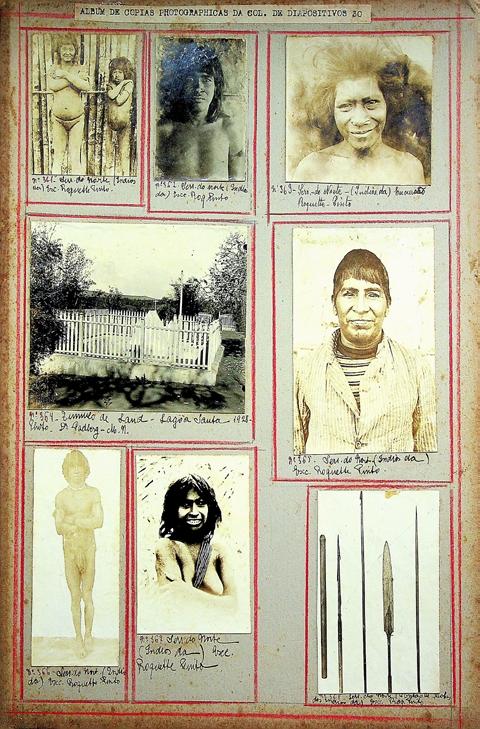 ALBUM DE COPIAS PHOTOGRAPHICAS DA COL. DE DIAPOSITIVOS 30
nº 361 - Serr. do Norte (Indios
da) Exc. Roquette Pinto.
nº 362 - Serr. do Norte (Indios
da) Exc. Roq. Pinto
nº 363 - Serr. do Norte - (Indios da)
Roquette - Pinto
nº 364 - Tumulo de Lund - Lagôa Santa - 1928 -
Photo. Dr Padberg - M. N.
nº 365 - Serr. do Nort. (Indios da)
Exc. Roquette Pinto.
nº 366 - Serr. do Nort. (Indios
da) Exc. Roquette Pinto
nº 367 Serr. do Norte
(Indios da) Exc.
Roquette Pinto
Serr. do Norte
dos Indios da) Exc. Roq. Pinto